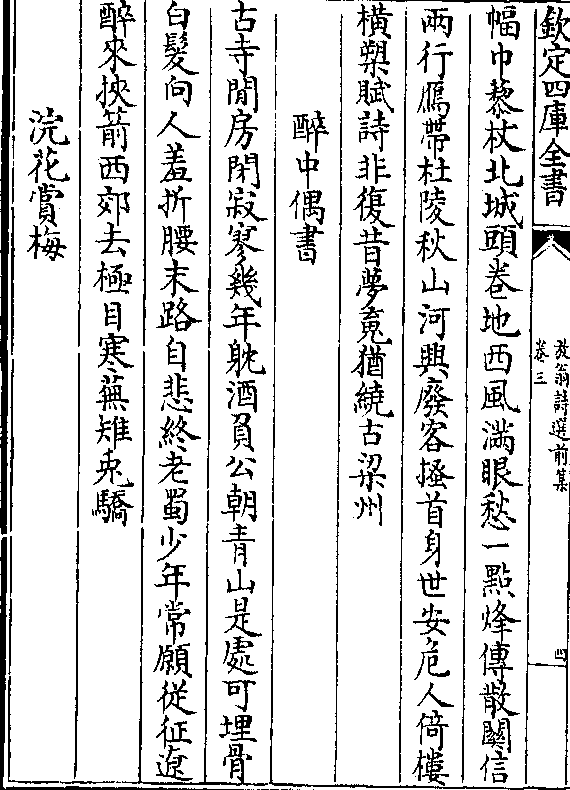 欽定四庫全書
放翁詩選前集
卷三
四
幅巾藜杖北城頭卷地西風滿眼愁一點烽傳散關信
兩行鴈帶杜陵秋山河興廢客搔首身世安危人倚樓
橫槊賦詩非復昔夢䰟猶繞古梁州
醉中偶書
古寺閒房閉寂寥幾年躭酒負公朝青山是處可埋骨
白髮向人羞折腰末路自悲終老蜀少年常願從征遼
醉來挾箭西郊去極目寒蕪雉兎驕
浣花賞梅